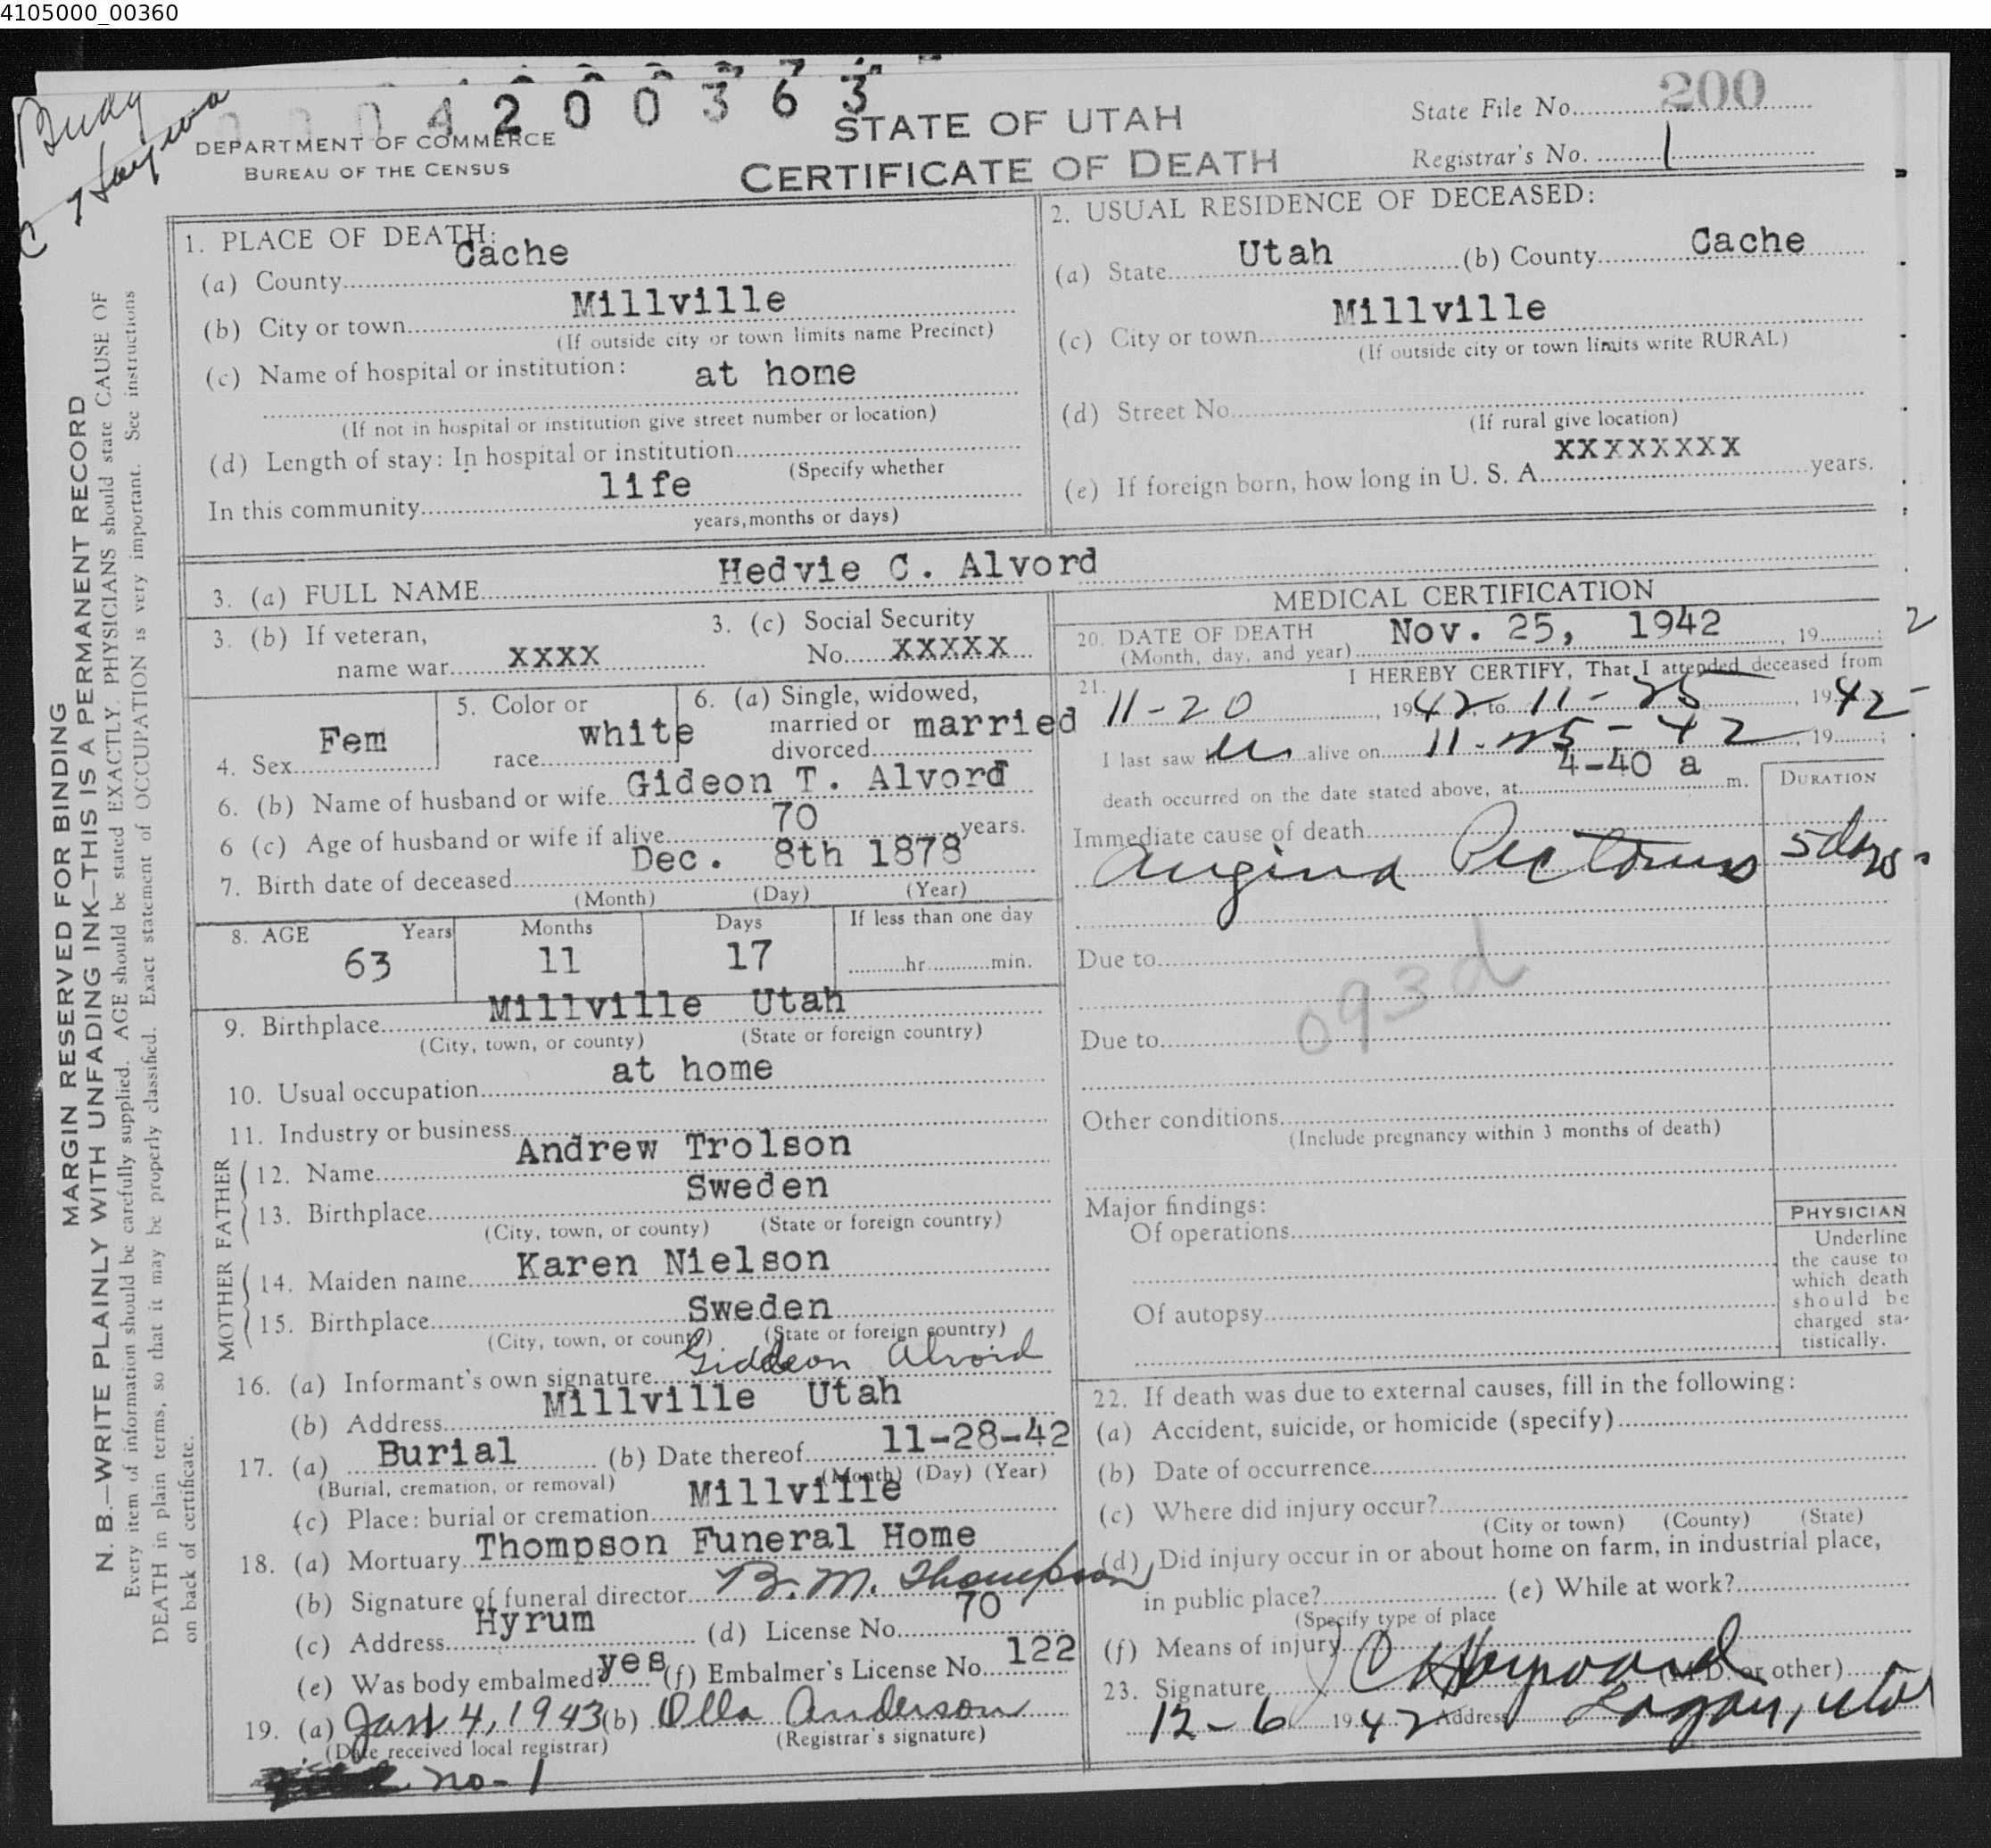 4105000_00360
0004200363
DEPARTMENT OF COMMERCE
BUREAU OF THE CENSUS
STATE OF UTAH
CERTIFICATE OF DEATH
State File No. 200
Registrar's No. 1
MARGIN RESERVED FOR BINDING
N. B.—WRITE PLAINLY WITH UNFADING INK—THIS IS A PERMANENT RECORD
Every item of information should be carefully supplied. AGE should be stated EXACTLY. PHYSICIANS should state CAUSE OF
DEATH in plain terms, so that it may be properly classified. Exact statement of OCCUPATION is very important. See instructions
on back of certificate.
1. PLACE OF DEATH:
(a) County Cache
(b) City or town Millville
(If outside city or town limits name Precinct)
(c) Name of hospital or institution: at home
(If not in hospital or institution give street number or location)
(d) Length of stay: In hospital or institution
(Specify whether
In this community life
years, months or days)
2. USUAL RESIDENCE OF DECEASED:
(a) State Utah (b) County Cache
(c) City or town Millville
(If outside city or town limits write RURAL)
(d) Street No.
(If rural give location)
(e) If foreign born, how long in U. S. A. XXXXXXXX years.
3. (a) FULL NAME Hedvie C. Alvord
3. (b) If veteran,
name war XXXX
3. (c) Social Security
No. XXXXX
4. Sex Fem
5. Color or
race white
6. (a) Single, widowed,
married or
divorced married
6. (b) Name of husband or wife Gideon T. Alvord
6 (c) Age of husband or wife if alive 70 years.
7. Birth date of deceased Dec. 8th 1878
(Month) (Day) (Year)
8. AGE Years 63 Months 11 Days 17 If less than one day
hr. min.
9. Birthplace Millville Utah
(City, town, or county) (State or foreign country)
10. Usual occupation at home
11. Industry or business
FATHER
12. Name Andrew Trolson
13. Birthplace Sweden
(City, town, or county) (State or foreign country)
MOTHER
14. Maiden name Karen Nielson
15. Birthplace Sweden
(City, town, or county) (State or foreign country)
16. (a) Informant's own signature Giddeon Alvord
(b) Address Millville Utah
17. (a) Burial (b) Date thereof 11-28-42
(Burial, cremation, or removal) (Month) (Day) (Year)
(c) Place: burial or cremation Millville
18. (a) Mortuary Thompson Funeral Home
(b) Signature of funeral director B. M. Thompson
(c) Address Hyrum (d) License No. 70
(e) Was body embalmed? yes (f) Embalmer's License No. 122
19. (a) Jan 4, 1943 (b) Olla Anderson
(Date received local registrar) (Registrar's signature)
no-1
MEDICAL CERTIFICATION
20. DATE OF DEATH
(Month, day, and year) Nov. 25, 1942, 19 ; 2
21. I HEREBY CERTIFY, That I attended deceased from
11-20, 1942, to 11-25, 1942
I last saw alive on 11-25-42, 19 ;
death occurred on the date stated above, at 4-40 a m.
DURATION
Immediate cause of death
Angina Pectoris 5 days
Due to
093d
Due to
Other conditions
(Include pregnancy within 3 months of death)
Major findings:
Of operations
Of autopsy
PHYSICIAN
Underline
the cause to
which death
should be
charged sta-
tistically.
22. If death was due to external causes, fill in the following:
(a) Accident, suicide, or homicide (specify)
(b) Date of occurrence
(c) Where did injury occur?
(City or town) (County) (State)
(d) Did injury occur in or about home on farm, in industrial place,
in public place? (e) While at work?
(Specify type of place
(f) Means of injury
23. Signature J C Hayward (M.D. or other)
12-6 1942 Address Logan, Utah